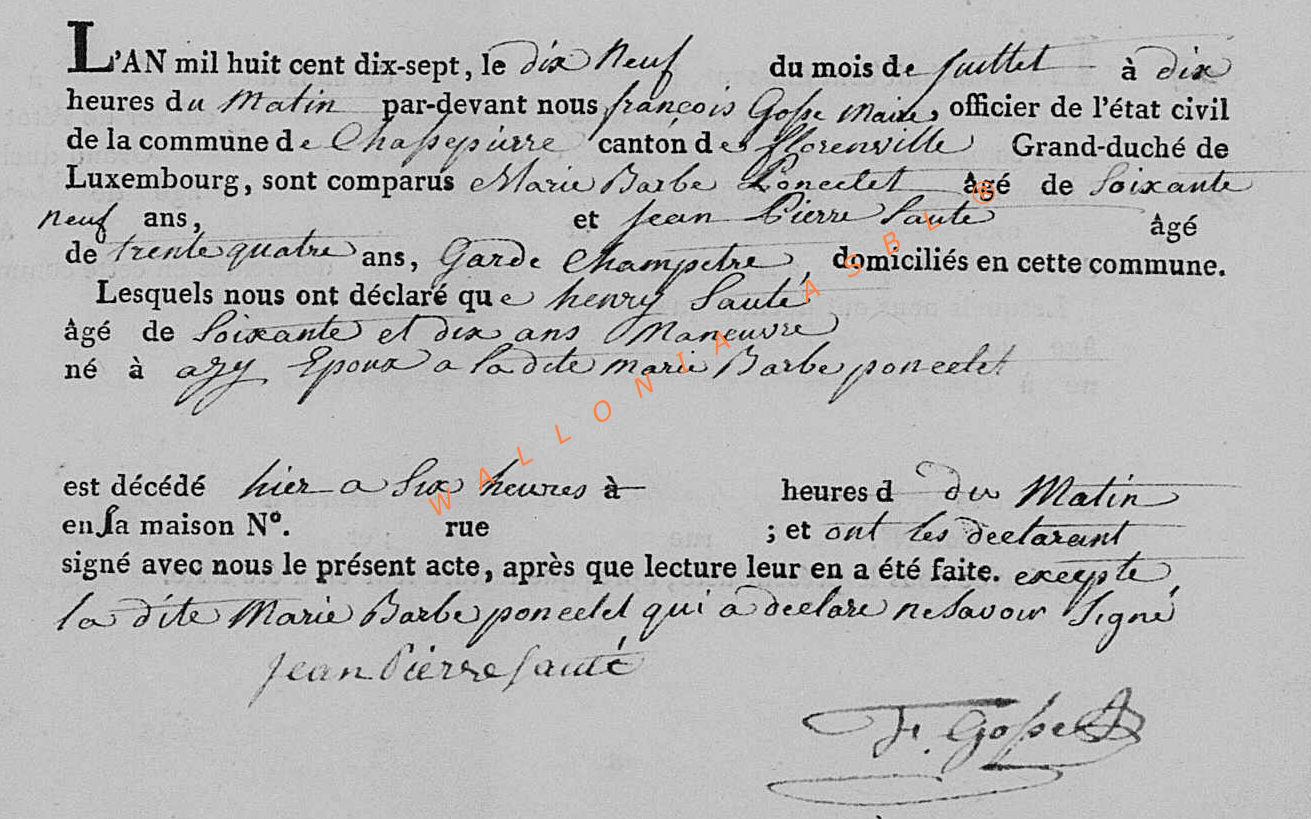 L'AN mil huit cent dix-sept, le dix neuf du mois de juillet à dix
heures du Matin par-devant nous françois Gosse Maire, officier de l'état civil
de la commune de Chassepierre canton de florenville Grand-duché de
Luxembourg, sont comparus Marie Barbe Poncelet âgé de Soixante
neuf ans, et jean Pierre Sauté âgé
de trente quatre ans, Garde Champetre, domiciliés en cette commune.
Lesquels nous ont déclaré que henry Sauté
âgé de Soixante et dix ans Maneuvre
né à azy Epoux a la dite marie Barbe poncelet
est décédé hier a Six heures à heures d du Matin
en sa maison N°. rue ; et ont les declarant
signé avec nous le présent acte, après que lecture leur en a été faite. excepte
la dite Marie Barbe poncelet qui a declare ne Savoir Signé
jean Pierre Sauté
F. Gosse
WALLONIA ASBL ®